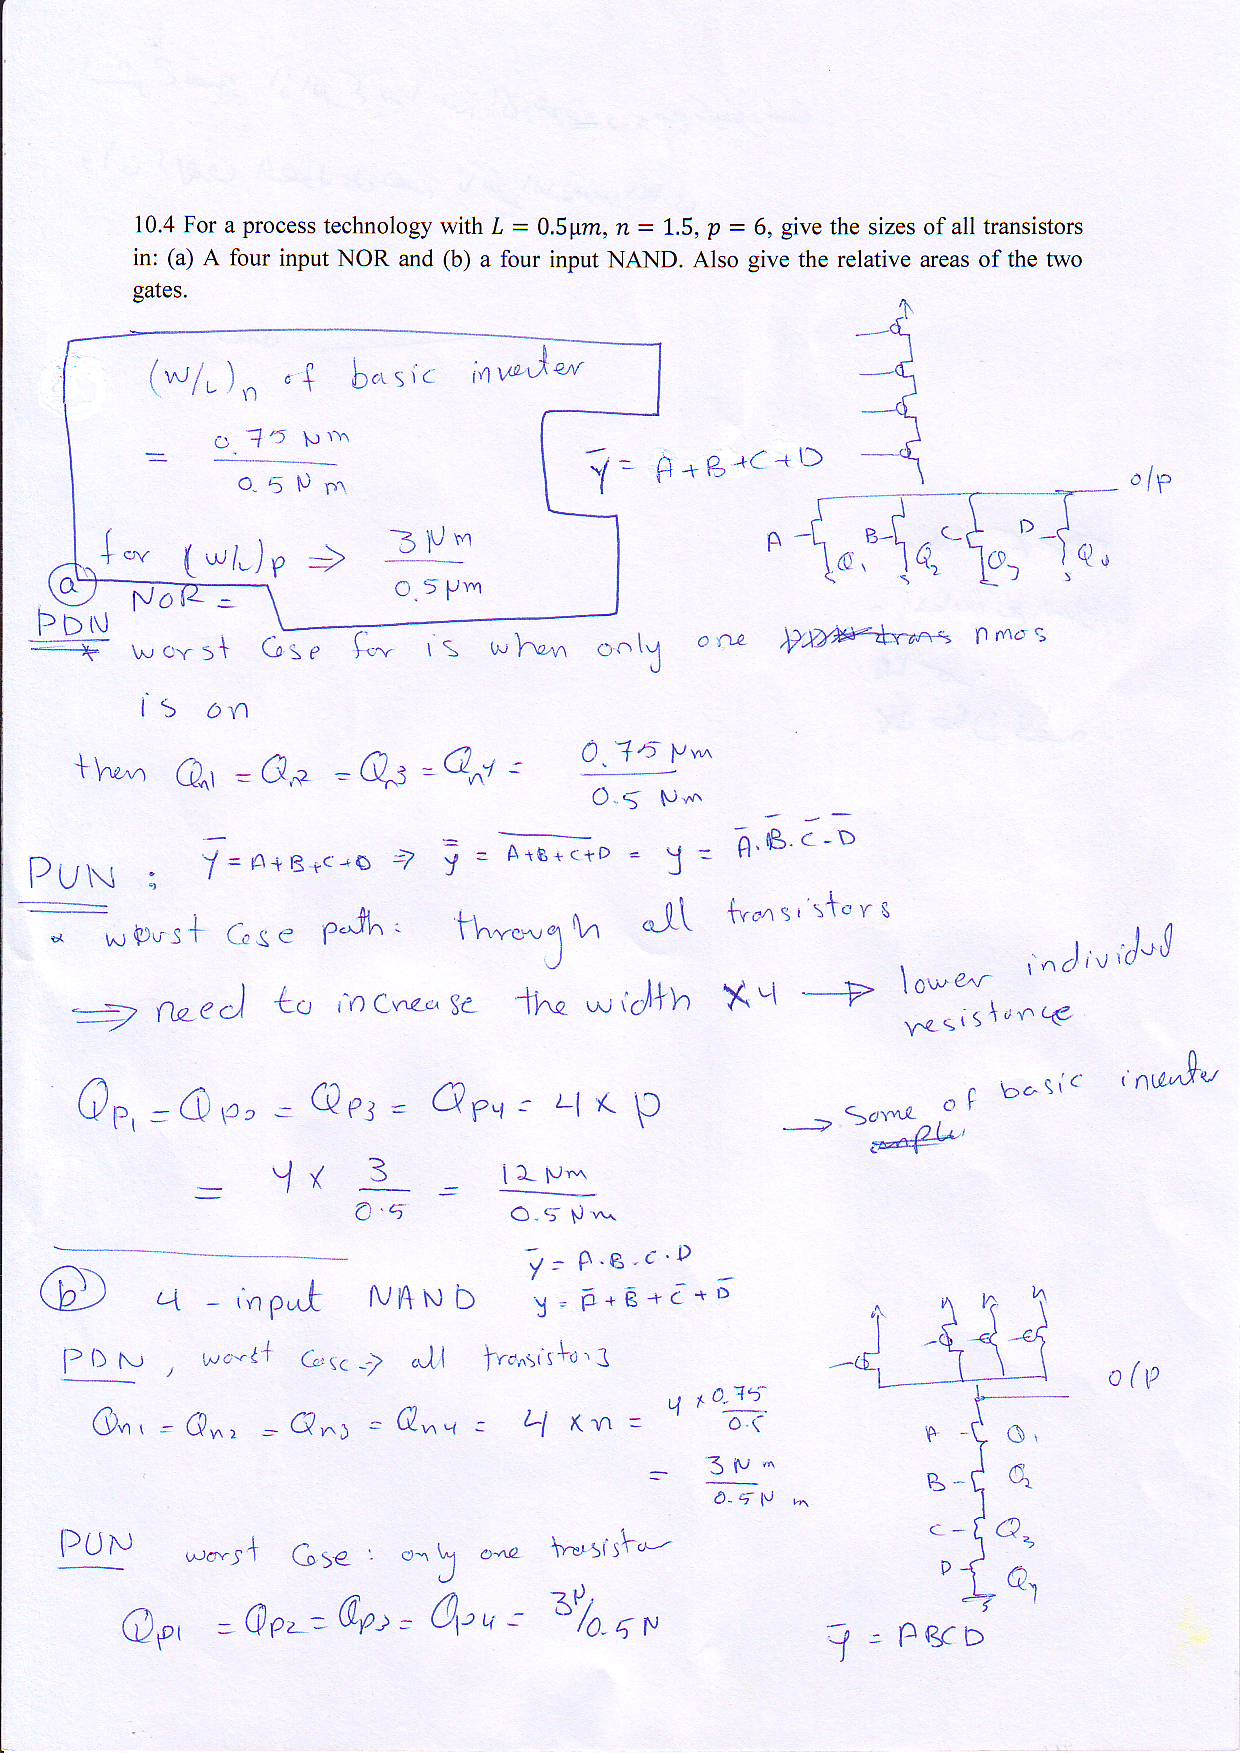 10.4 For a process technology with L = 0.5μm, n = 1.5, p = 6, give the sizes of all transistors
in: (a) A four input NOR and (b) a four input NAND. Also give the relative areas of the two
gates.
(W/L)n of basic inverter
= 0.75 μm / 0.5 μm
Y̅ = A+B+C+D
o/p
A B C D
Q1 Q2 Q3 Q4
for (W/L)p ⇒ 3 μm / 0.5 μm
(a) NOR =
PDN
* worst Case for is when only one nmos
is on
then Qn1 = Qn2 = Qn3 = Qn4 = 0.75 μm / 0.5 μm
PUN : Y̅ = A+B+C+D ⇒ y̿ = \overline{A+B+C+D} = y = A̅.B̅.C̅.D̅
* worst Case path: through all transistors
⇒ need to increase the width X4 → lower individual
resistance
Qp1 = Qp2 = Qp3 = Qp4 = 4 x p
→ Same of basic inverter
= 4 x 3 / 0.5 = 12 μm / 0.5 μm
y̅ = A.B.C.D
(b) 4 - input NAND y = A̅ + B̅ + C̅ + D̅
PDN , worst Case ⇒ all transistors
o/p
Qn1 = Qn2 = Qn3 = Qn4 = 4 x n = 4 x 0.75 / 0.5
= 3 μm / 0.5 μm
A Q1
B Q2
C Q3
D Q4
PUN worst Case : only one transistor
Qp1 = Qp2 = Qp3 = Qp4 = 3μ/0.5 μ
y̅ = ABCD